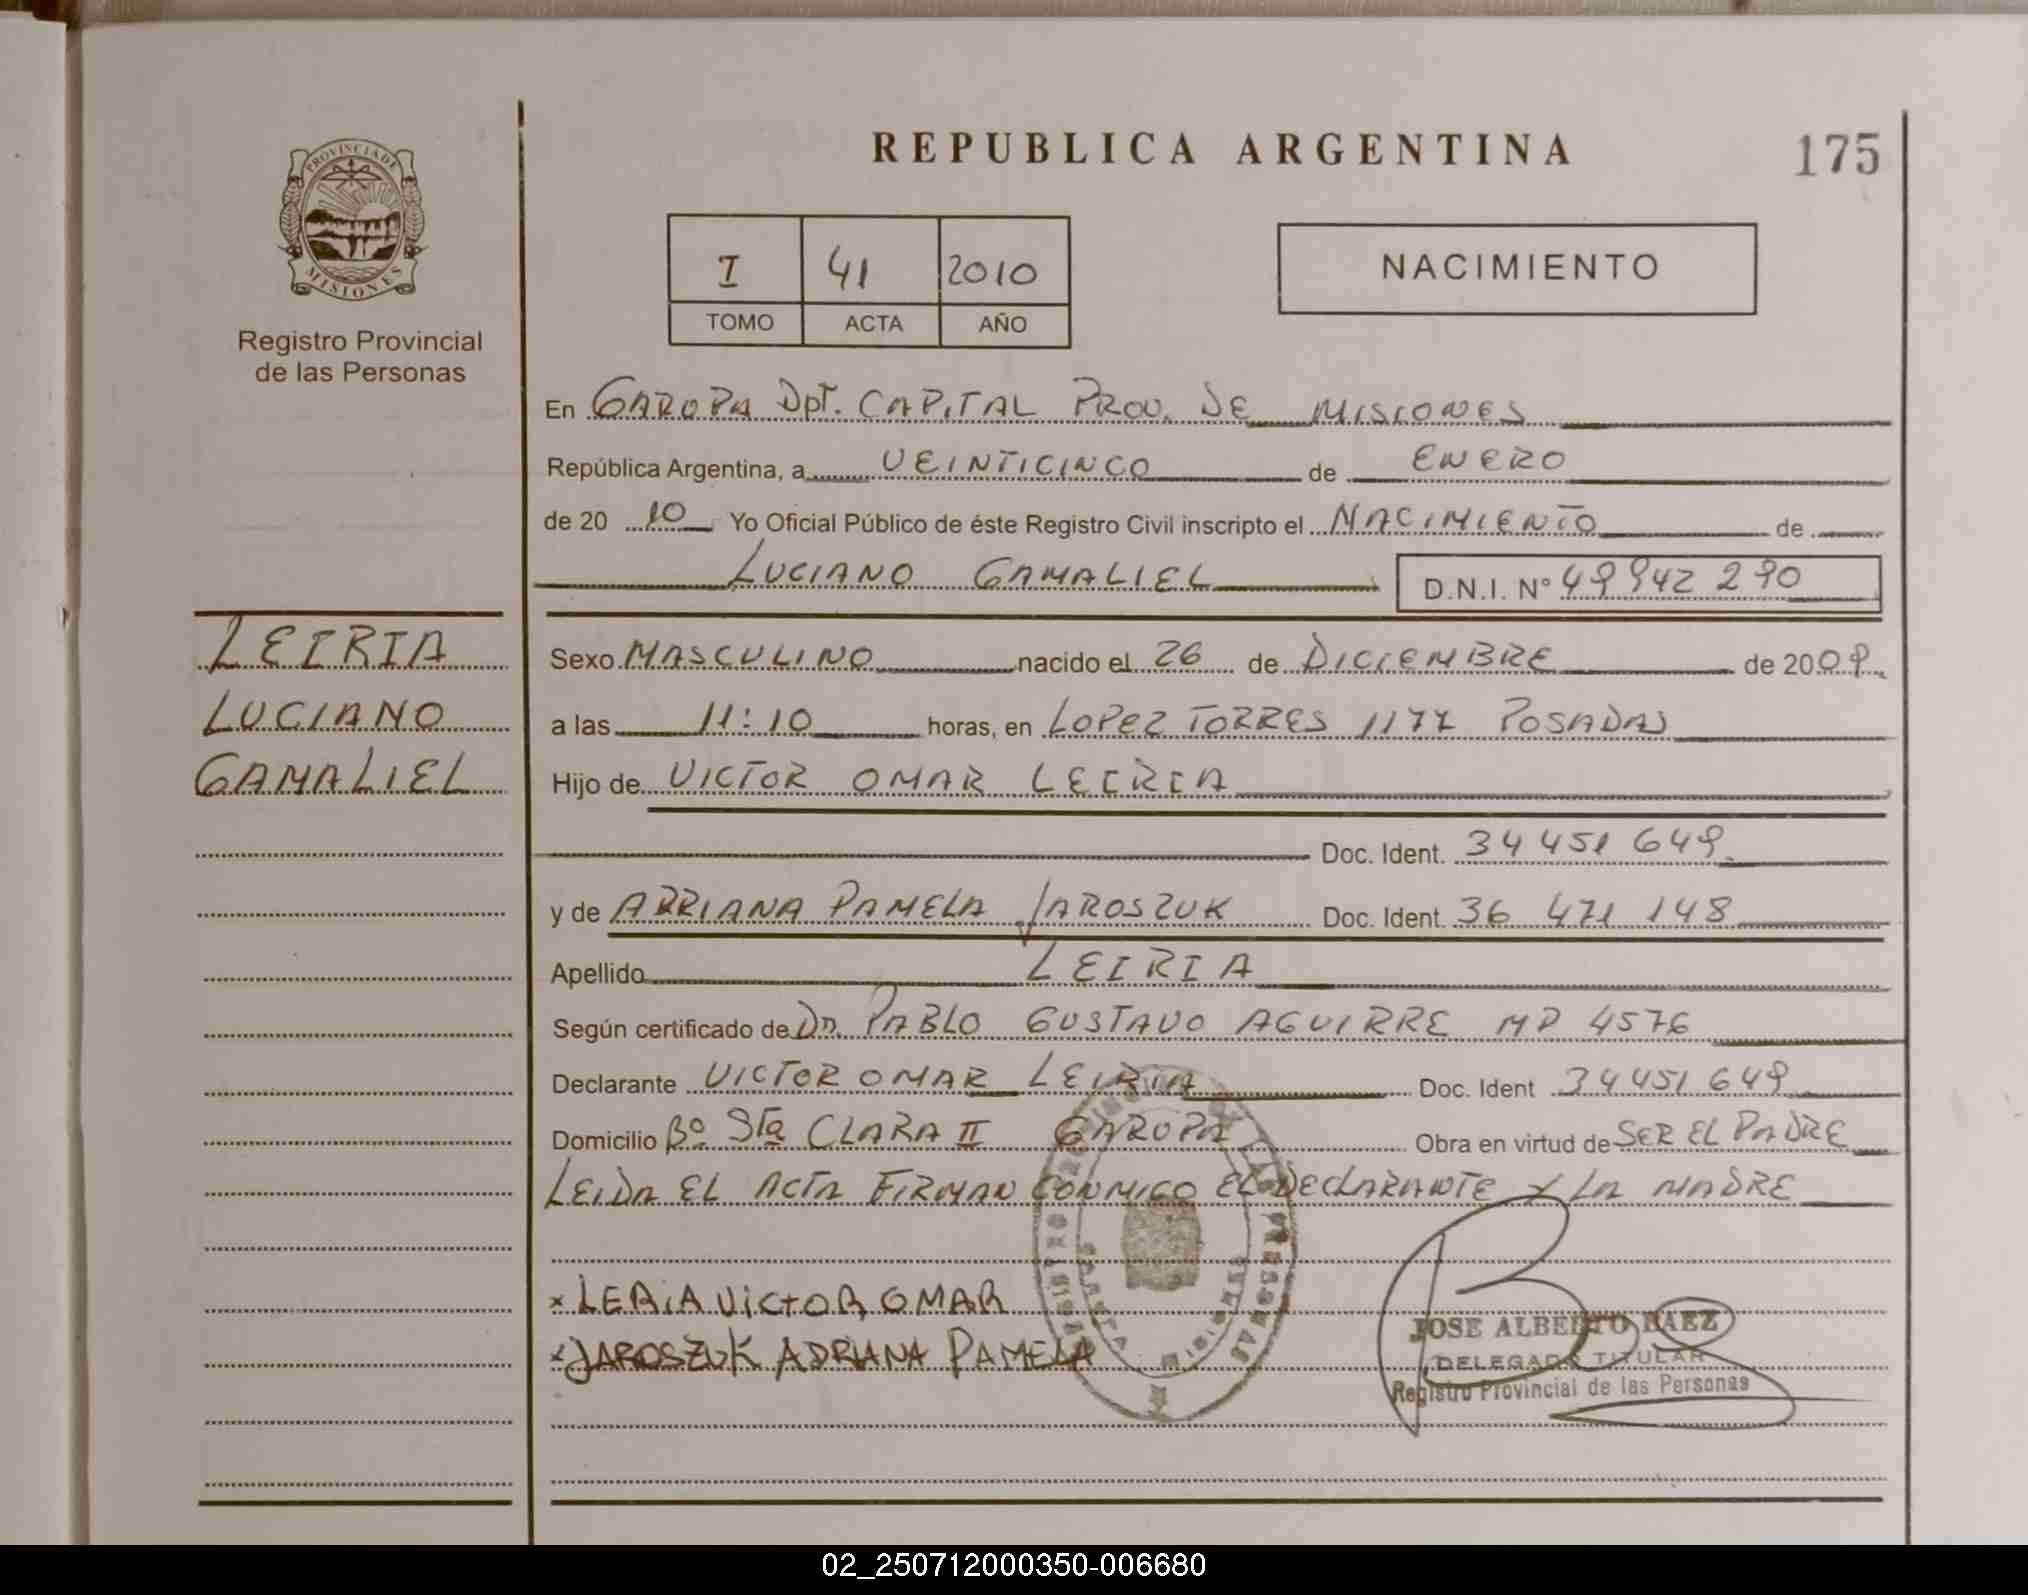 REPUBLICA ARGENTINA
175
PROVINCIA DE
MISIONES
Registro Provincial
de las Personas
I 41 2010
TOMO ACTA AÑO
NACIMIENTO
En GARUPA DpT. CAPITAL PROV. DE MISIONES
República Argentina, a VEINTICINCO de ENERO
de 20 10 Yo Oficial Público de éste Registro Civil inscripto el NACIMIENTO de
LUCIANO GAMALIEL D.N.I. Nº 49942290
LEIRIA
LUCIANO
GAMALIEL
Sexo MASCULINO nacido el 26 de DICIEMBRE de 2009
a las 11:10 horas, en LOPEZ TORRES 1177 POSADAS
Hijo de VICTOR OMAR LEIRIA
Doc. Ident. 34 451 649
y de ADRIANA PAMELA JAROSZUK Doc. Ident. 36 471 148
Apellido LEIRIA
Según certificado de Dr. PABLO GUSTAVO AGUIRRE MP 4576
Declarante VICTOR OMAR LEIRIA Doc. Ident 34451649
Domicilio Bº Sta CLARA II GARUPA Obra en virtud de SER EL PADRE
LEIDA EL ACTA FIRMAN CONMIGO EL DECLARANTE Y LA MADRE
x LERiA ViCtOR OMAR
x JAROSZUK ADRIANA PAMELA
JOSE ALBERTO BAEZ
DELEGADO TITULAR
Registro Provincial de las Personas
02_250712000350-006680